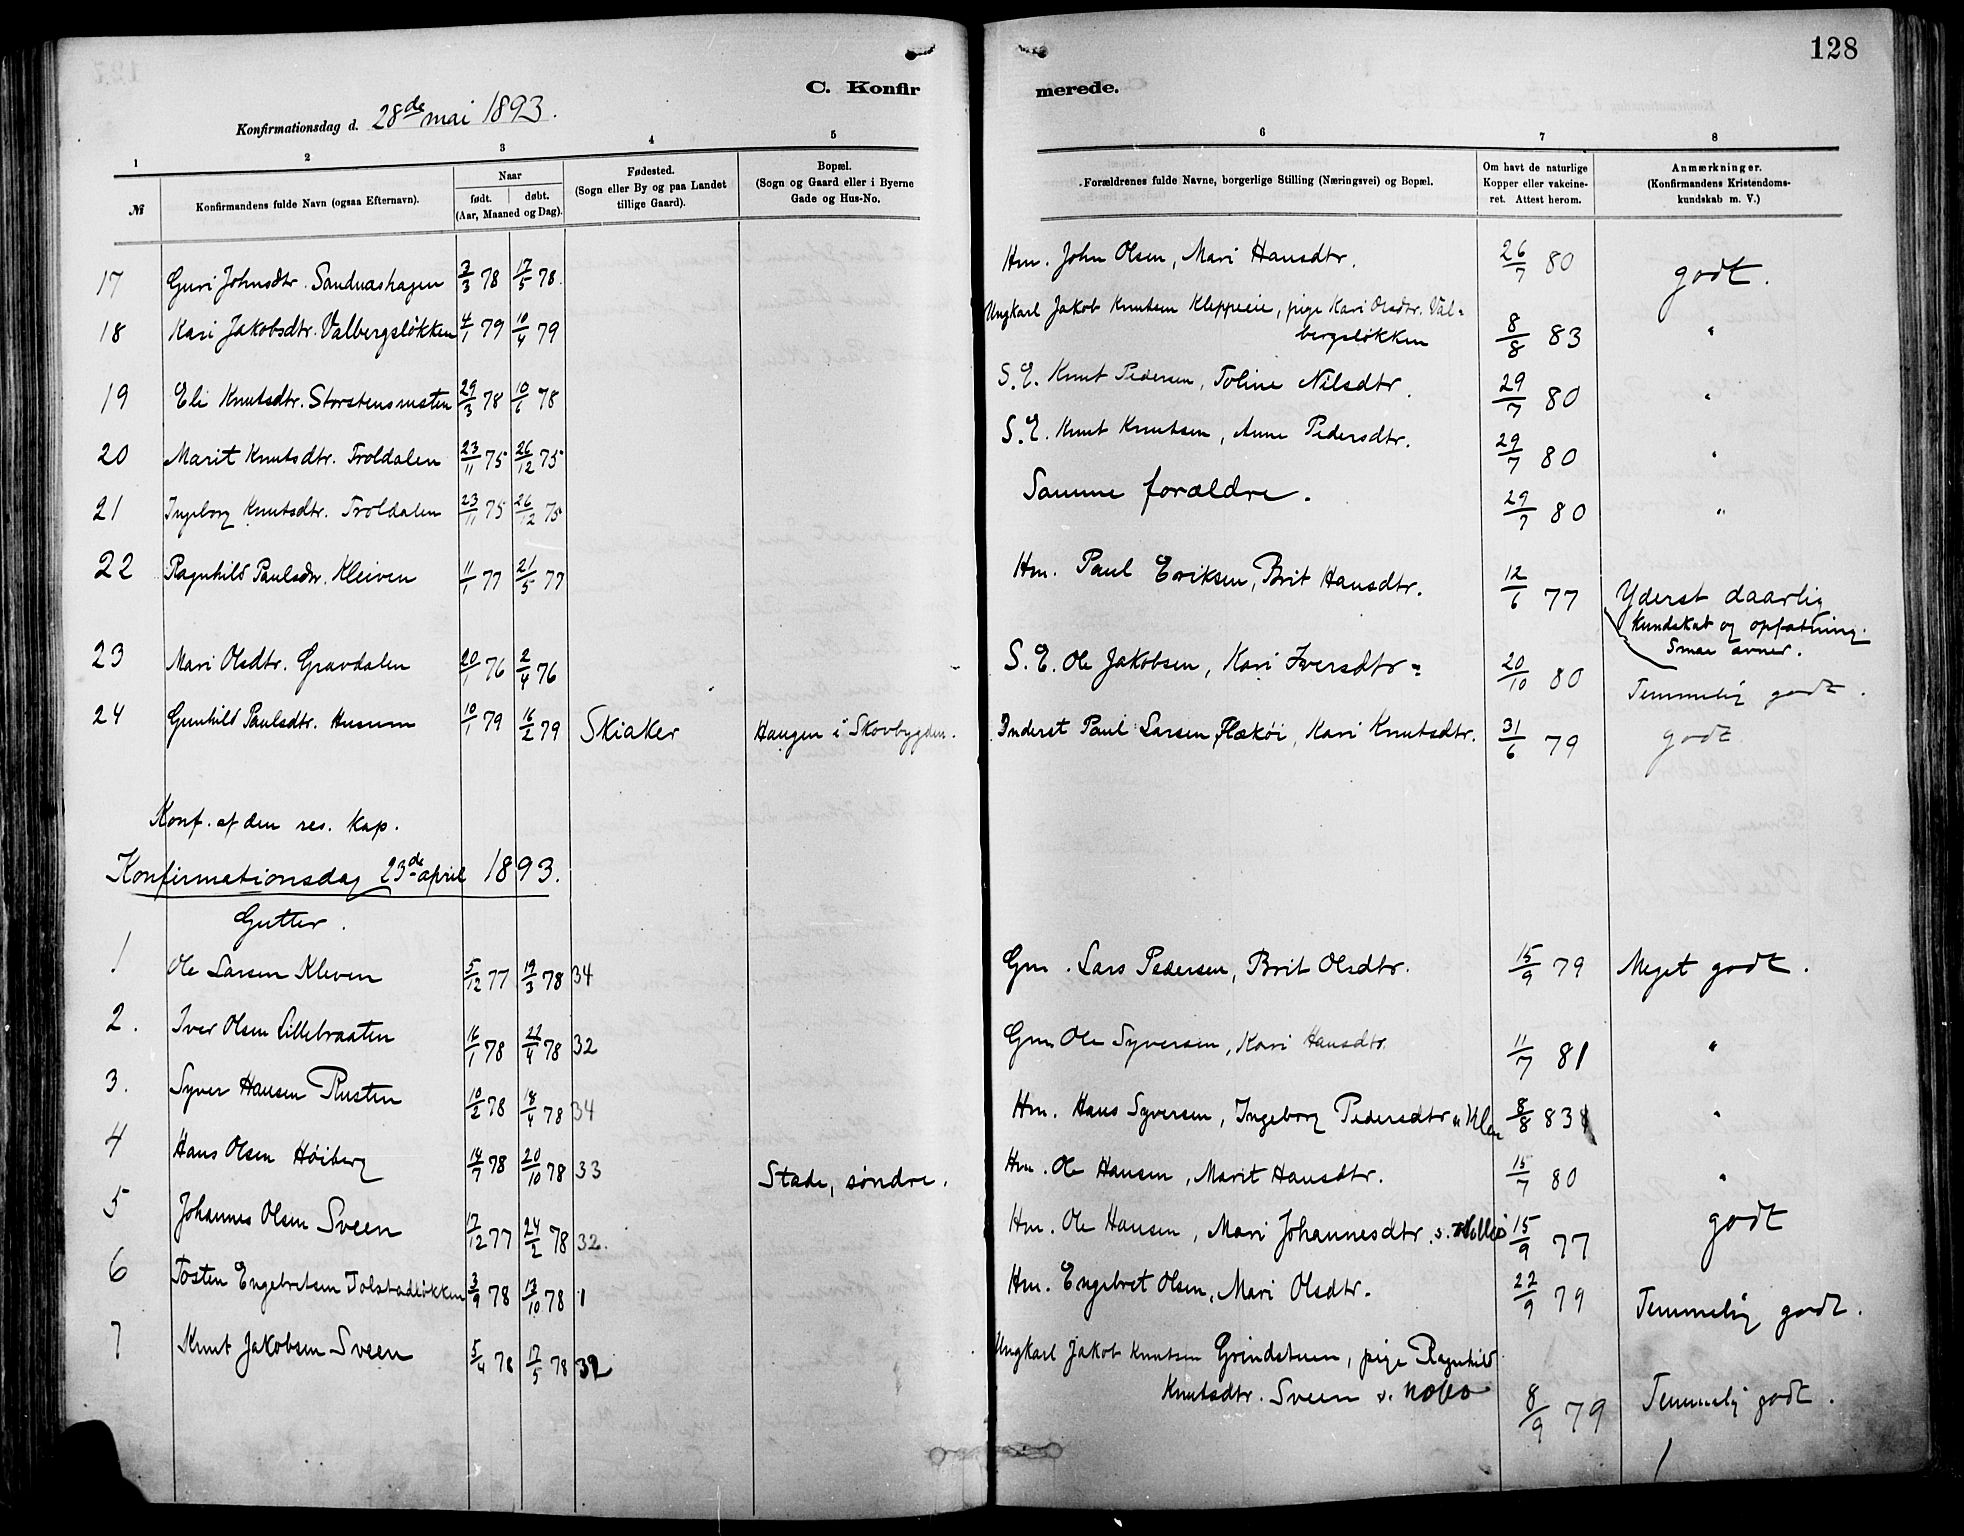 128
C. Konfirmerede.
Konfirmationsdag d. 28de mai 1893.
1 2 3 4 5 6 7 8
№ Konfirmandens fulde Navn (ogsaa Efternavn). Naar født. døbt. (Aar, Maaned og Dag). Fødested. (Sogn eller By og paa Landet tillige Gaard). Bopæl. (Sogn og Gaard eller i Byerne Gade og Hus-No. Forældrenes fulde Navne, borgerlige Stilling (Næringsvei) og Bopæl. Om havt de naturlige Kopper eller vakcineret. Attest herom. Anmærkninger. (Konfirmandens Kristendomskundskab m. V.)
17 Guri Johnsdtr. Sandnashagen 3/3 78 17/5 78. Hm. John Olsen, Mari Hansdtr. 26/7 80 godt.
18 Kari Jakobsdtr. Valbergsløkken 4/1 79 10/4 79 Ungkarl Jakob Knutsen Kleppeeie, pige Kari Olsdtr. Val-
bergsløkken 8/8 83 "
19 Eli Knutsdtr. Storstensrusten 29/3 78 10/6 78 S.E. Knut Pedersen, Toline Nilsdtr. 29/7 80 "
20 Marit Knutsdtr. Troldalen 23/11 75 26/12 75 S.E. Knut Knutsen, Anne Pedersdtr. 29/7 80 "
21 Ingeborg Knutsdtr. Troldalen 23/11 75 26/12 75 Samme forældre. 29/7 80 "
22 Ragnhild Paulsdtr. Kleiven 11/1 77 21/5 77 Hm. Paul Eriksen, Brit Hansdtr. 12/6 77 Yderst daarlig
kundskab og opfatning.
Smaa evner.
23 Mari Olsdtr. Gravdalen 20/1 76 2/4 76 S.E. Ole Jakobsen, Kari Iversdtr. 20/10 80 Temmelig godt.
24 Gunhild Paulsdtr. Husum 10/1 79 16/2 79 Skiaker Haugen i Skovbygden. Inderst Paul Larsen Flækøi, Kari Knutsdtr. 31/6 79 godt.
Konf. af den res. kap.
Konfirmationsdag 23de april 1893.
Gutter.
1 Ole Larsen Kleven 5/12 77 19/3 78 34 Gm. Lars Pedersen, Brit Olsdtr. 15/9 79 Meget godt.
2. Iver Olsen Lillebraaten 16/1 78 22/4 78 32 Gm. Ole Syversen, Kari Hansdtr. 11/7 81 "
3. Syver Hansen Rusten 10/2 78 18/4 78 34 Hm. Hans Syversen, Ingeborg Pedersdtr 8/8 83 "
4 Hans Olsen Høiberg 14/7 78 20/10 78 33 Stade, søndre. Hm. Ole Hansen, Marit Hansdtr. 15/7 80 "
5 Johannes Olsen Sveen 17/12 77 24/2 78 32. Hm. Ole Hansen, Mari Johannesdtr. 15/9 77 godt
6 Tosten Engebretsen Tolstadløkken 3/9 78 13/10 78 1 Hm. Engebret Olsen, Mari Olsdtr. 22/9 79 Temmelig godt.
7 Knut Jakobsen Sveen 5/4 78 17/5 78 32 Ungkarl Jakob Knutsen Grindstuen, pige Ragnhild
Knutsdtr. Sveen 8/9 79 Temmelig godt.